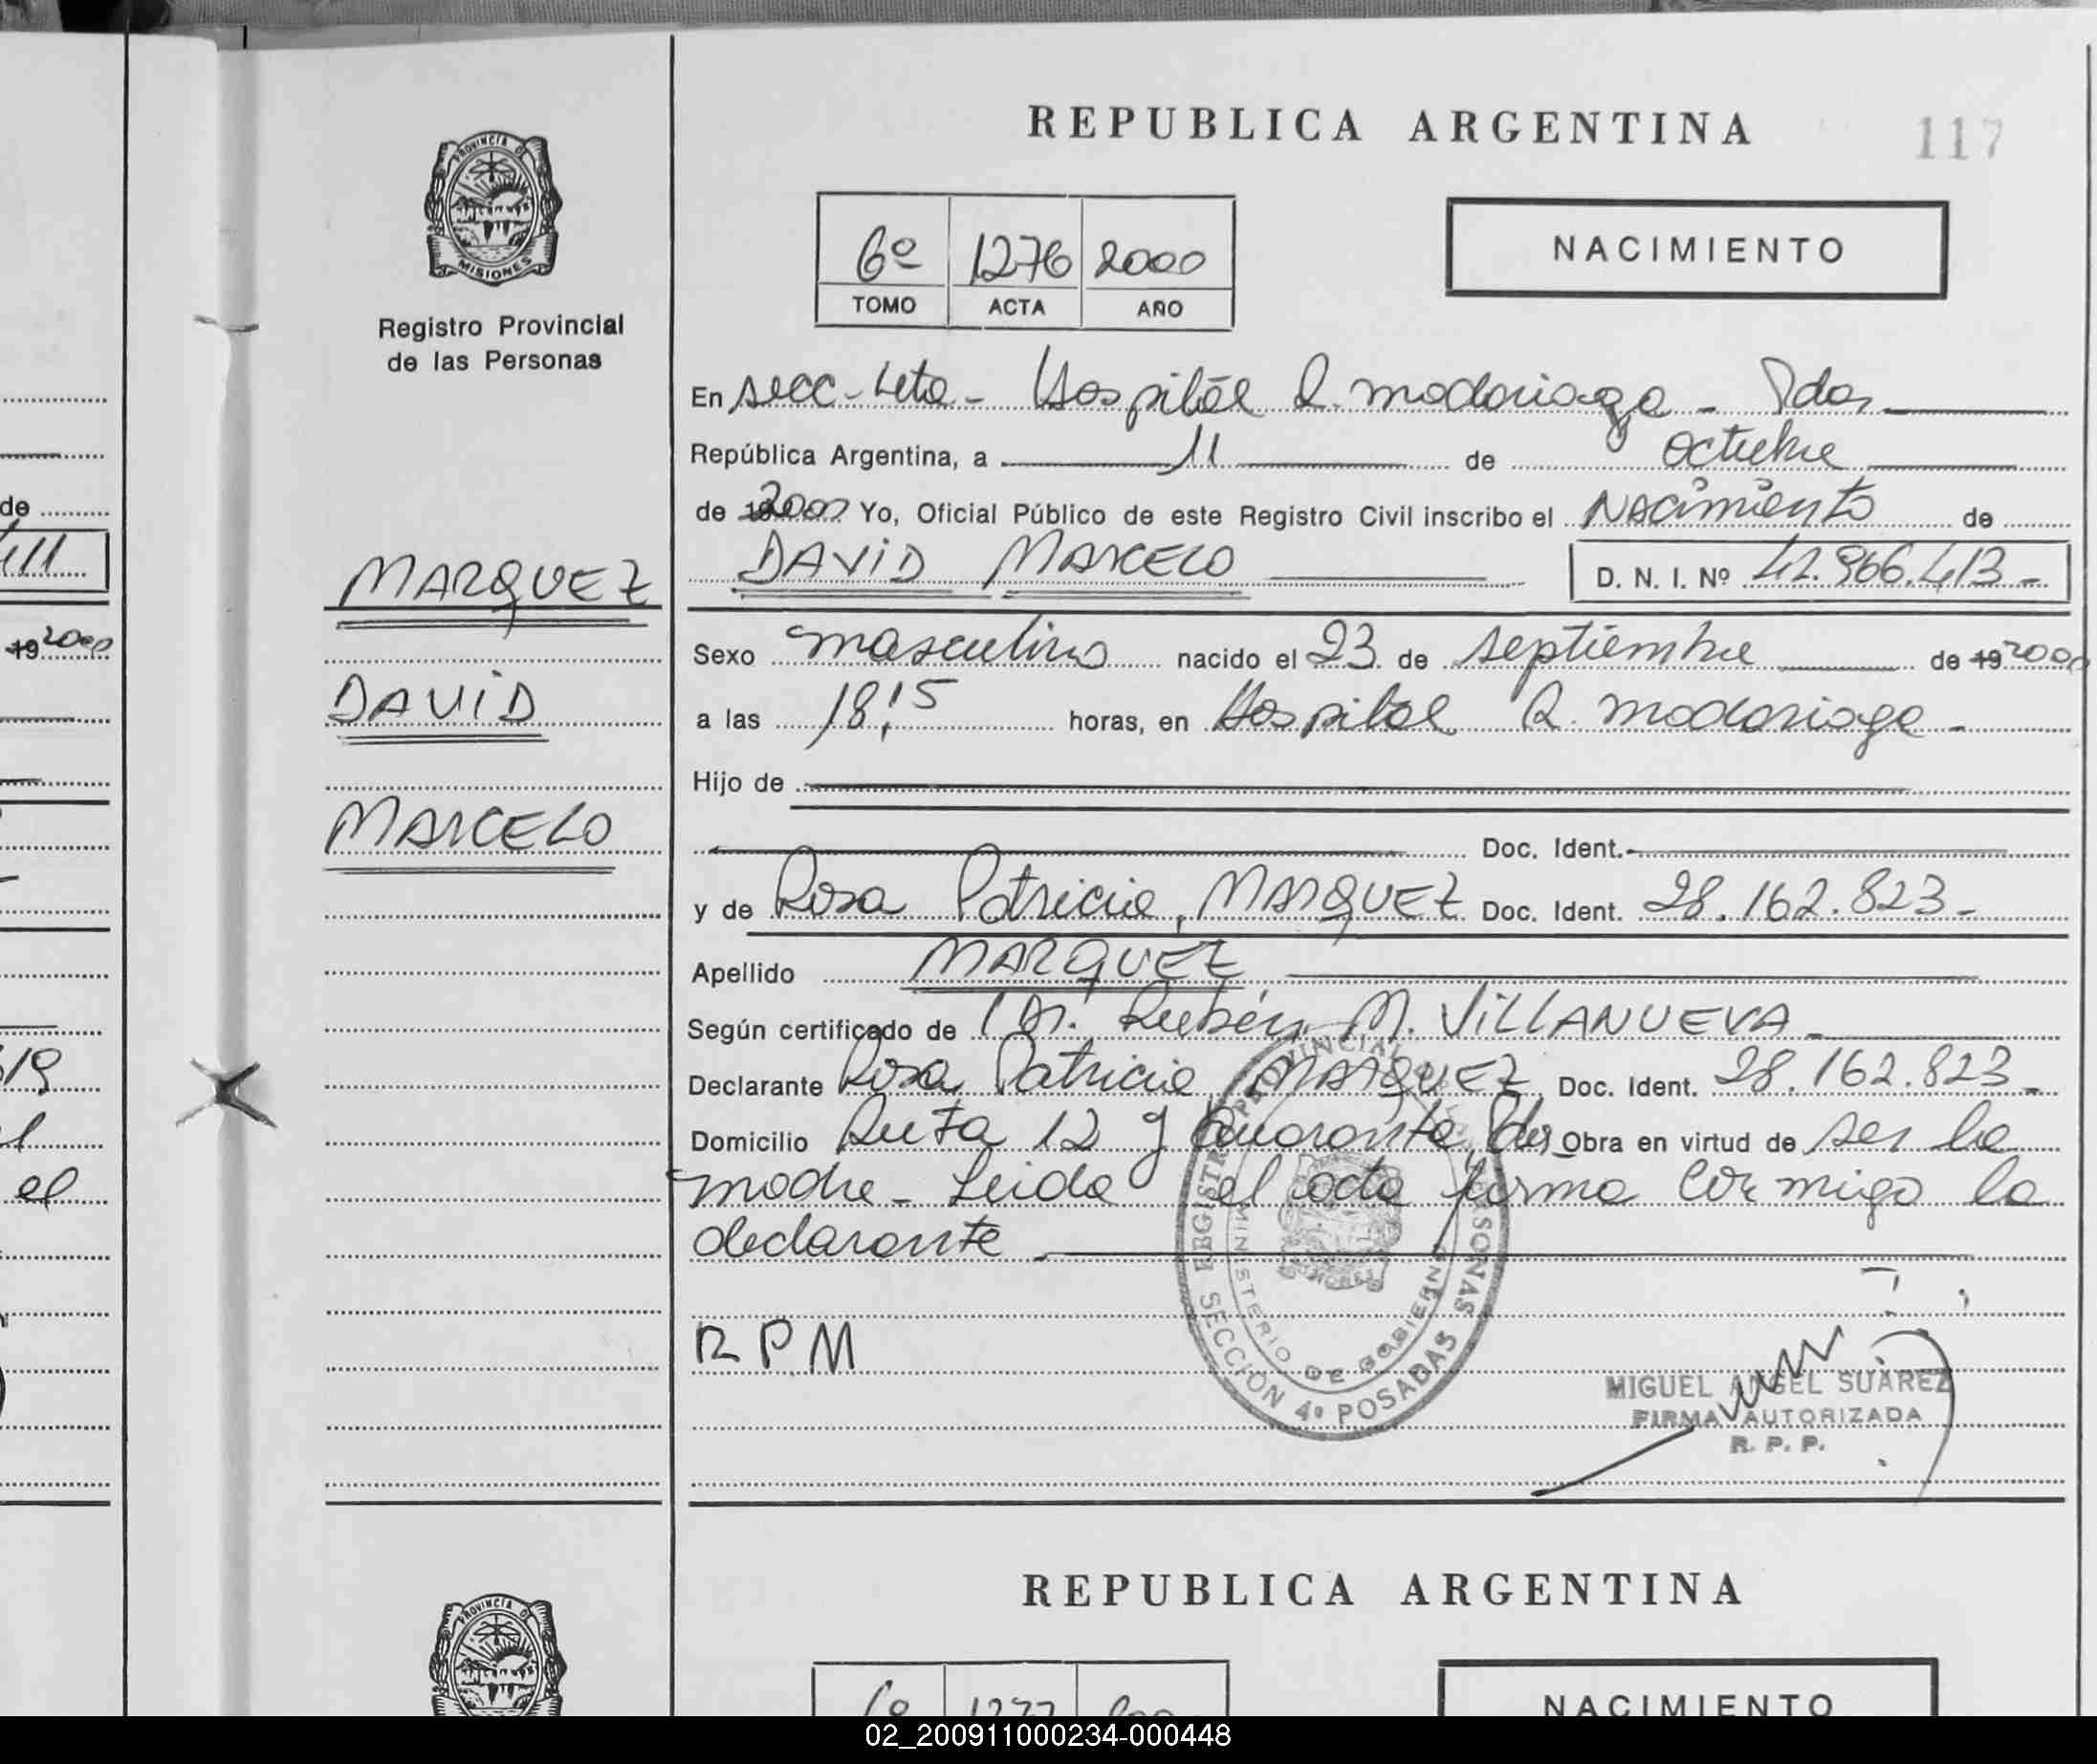 REPUBLICA ARGENTINA
117
PROVINCIA DE MISIONES
Registro Provincial
de las Personas
6º 1276 2000
TOMO ACTA AÑO
NACIMIENTO
En secc-4ta- Hospital R. Madariaga - Pdas
República Argentina, a 11 de octubre
de 19 2000 Yo, Oficial Público de este Registro Civil inscribo el Nacimiento de
DAVID MARCELO D. N. I. Nº 42.966.413-
MARQUEZ
DAVID
MARCELO
Sexo masculino nacido el 23 de septiembre de 19 2000
a las 18,15 horas, en Hospital R. Madariaga -
Hijo de
Doc. Ident.
y de Rosa Patricia, MARQUEZ Doc. Ident. 28.162.823-
Apellido MARQUEZ
Según certificado de Dr. Rubén M. VILLANUEVA-
Declarante Rosa Patricia MARQUEZ Doc. Ident. 28.162.823-
Domicilio Ruta 12 y Pdas Obra en virtud de ser la
madre - Leida el acta firma conmigo la
declarante
REGISTRO PROVINCIAL DE LAS PERSONAS
MINISTERIO DE GOBIERNO
SECCIÓN 4º POSADAS
RPM
MIGUEL ANGEL SUAREZ
FIRMA AUTORIZADA
R. P. P.
de
19 2000
19
el
REPUBLICA ARGENTINA
PROVINCIA DE
6º 1277
NACIMIENTO
02_200911000234-000448